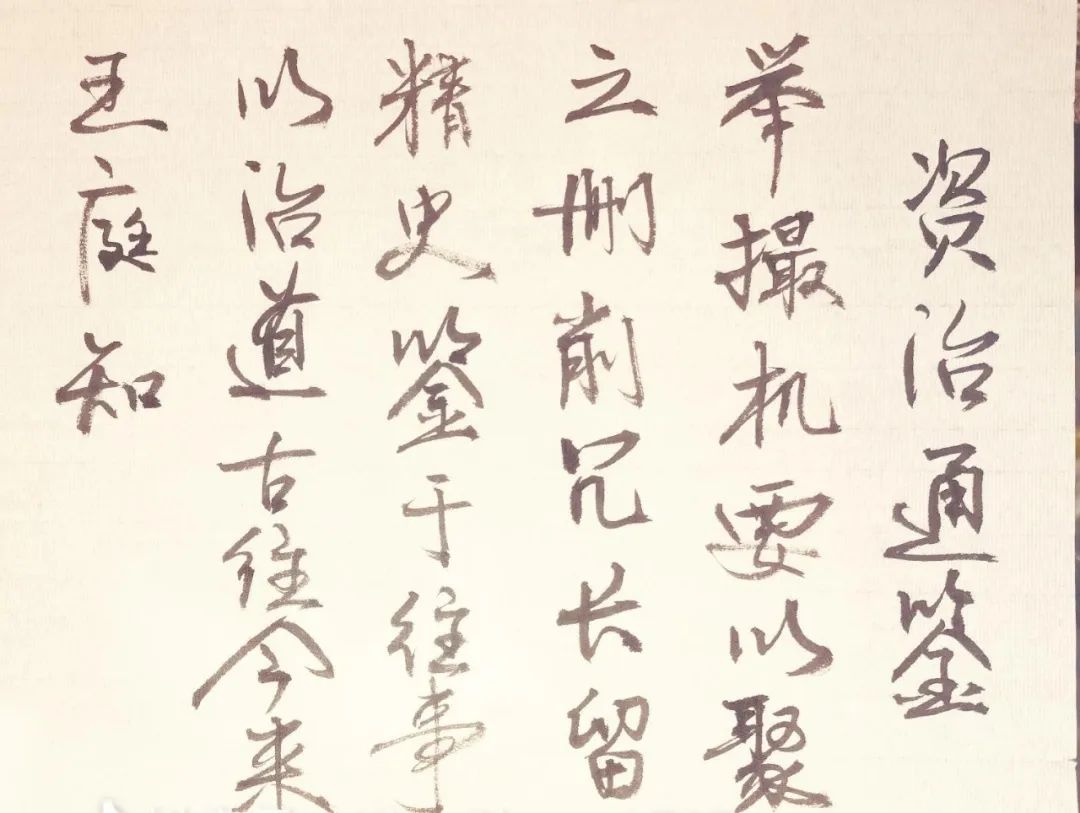 资治通鉴
举撮机要以聚
之删削冗长留
精史鉴于往事
以治道古往今来
王庭知